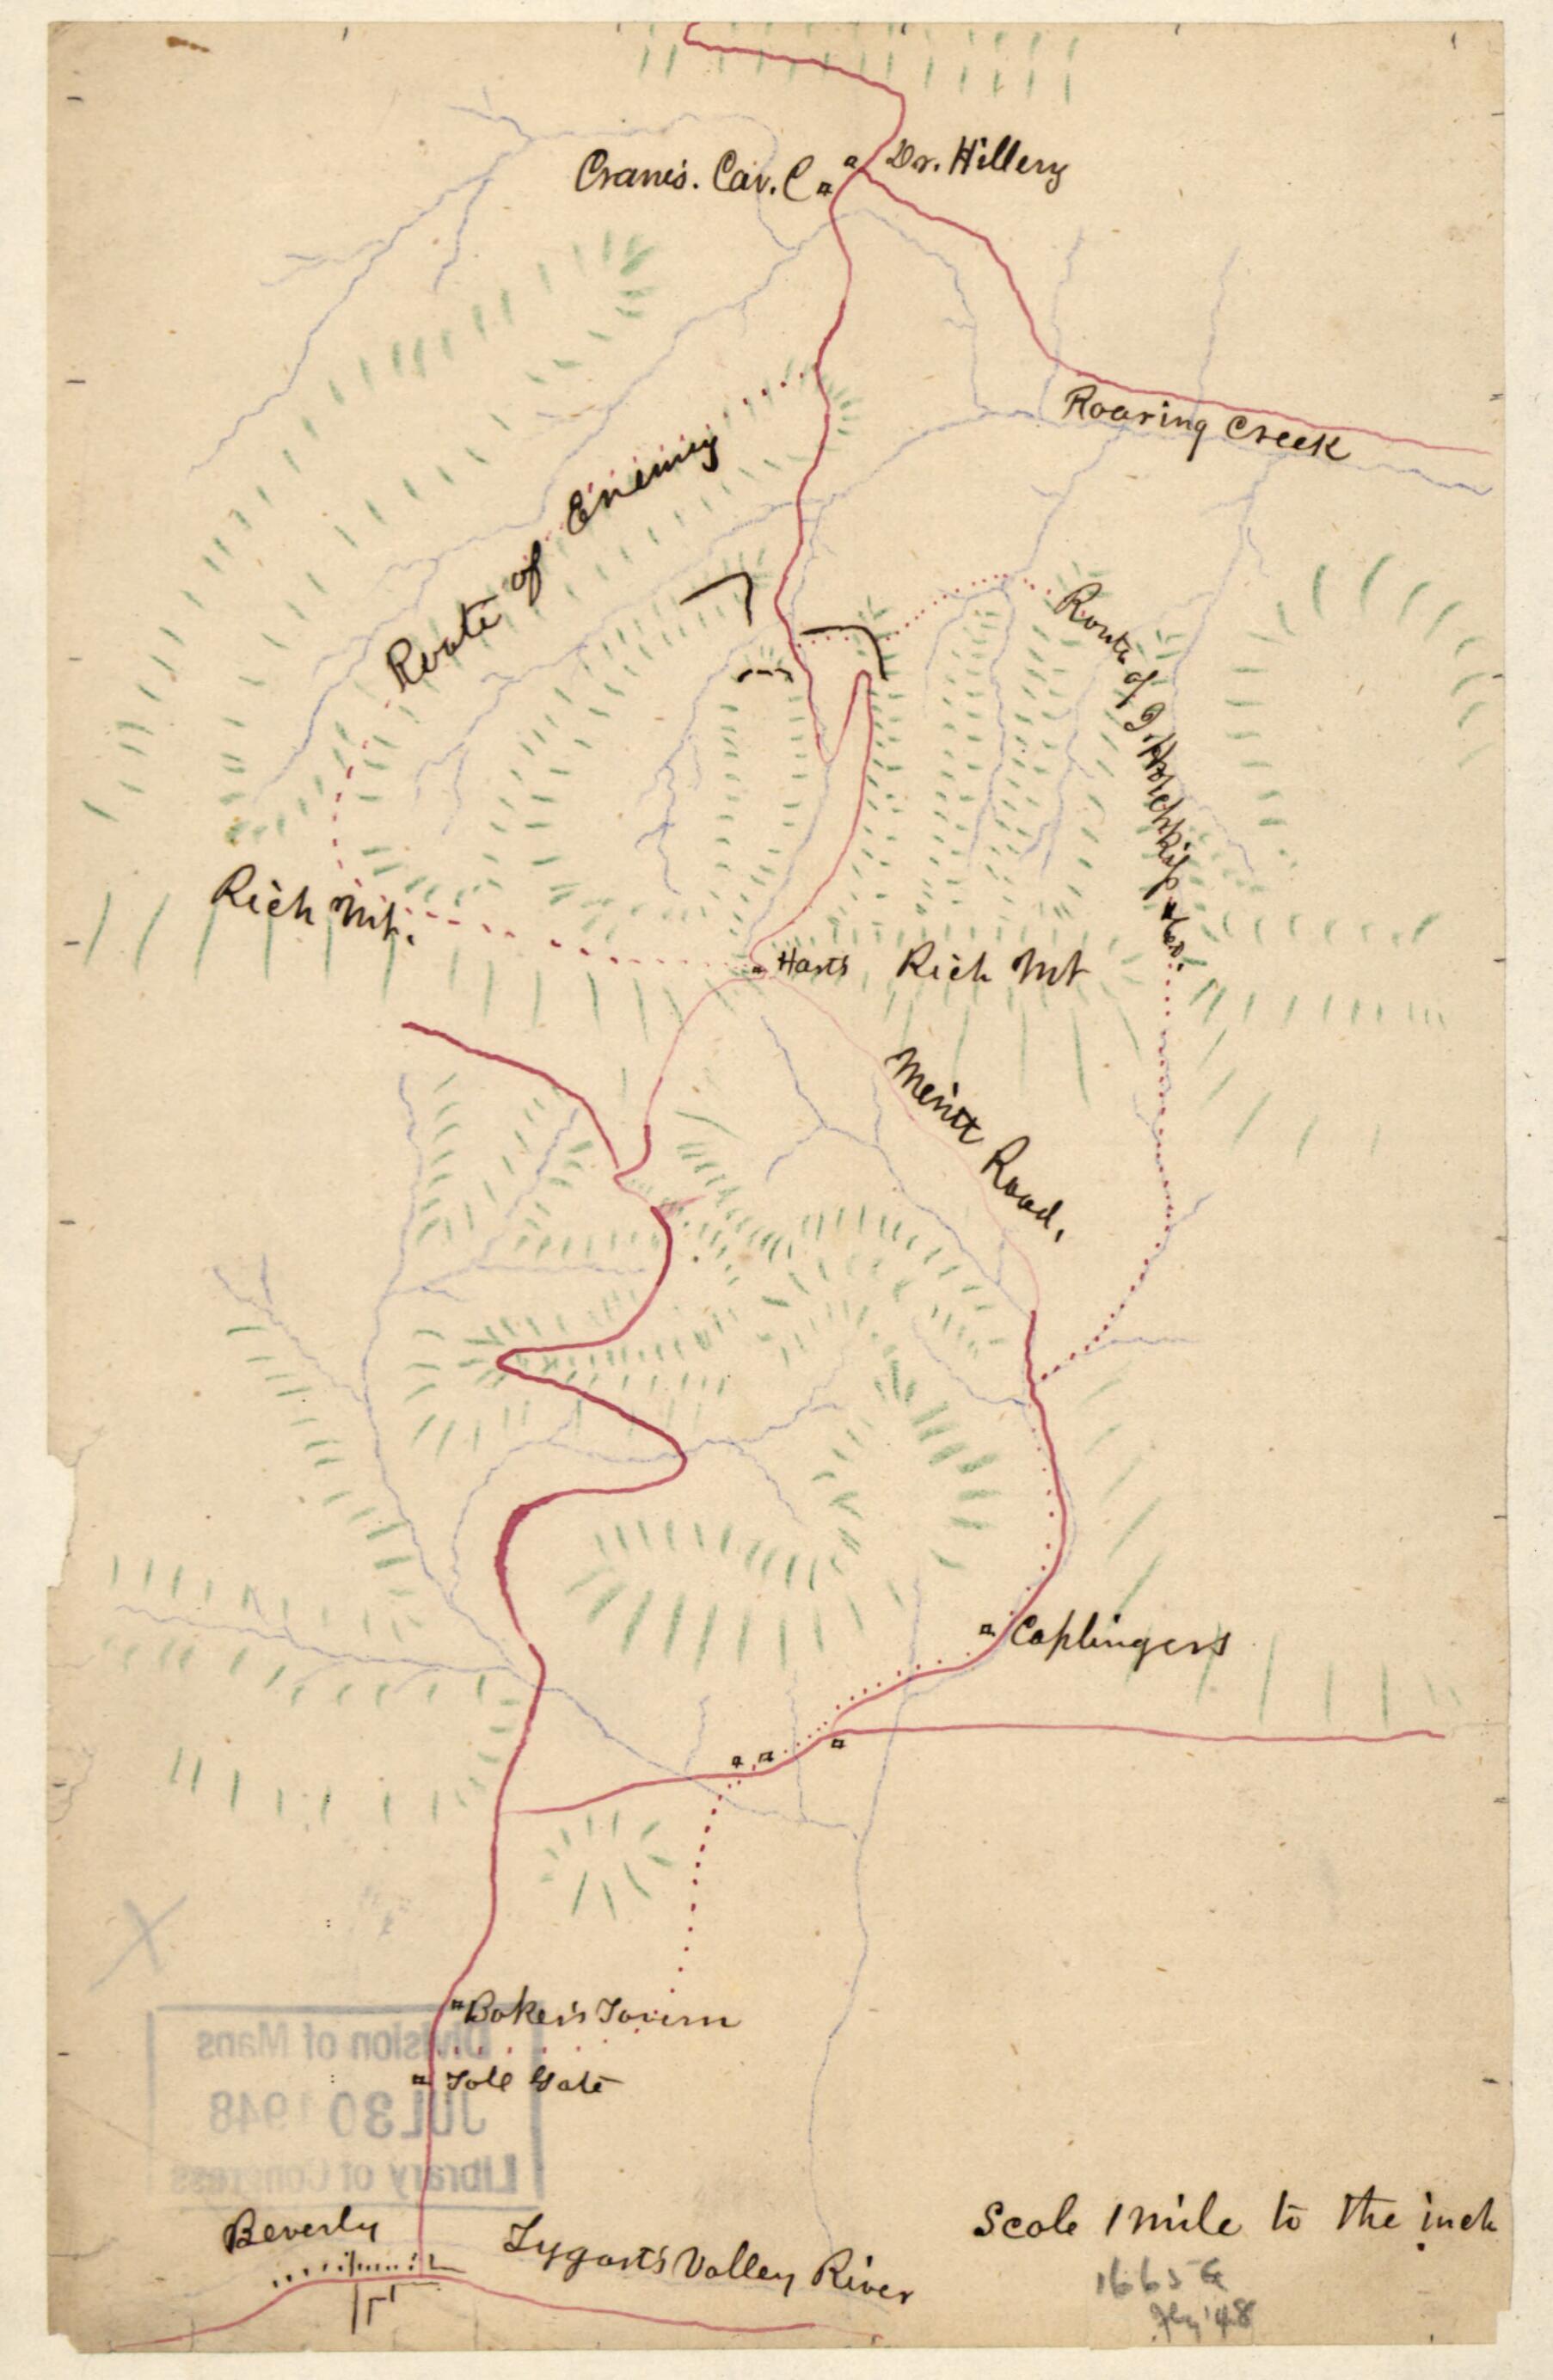 Dr. Hillery
Crane's. Cav. C
Roaring Creek
Route of Enemy
Route of J. Hotchkiss &co.
Rich Mt.
Harts
Rich Mt
Road.
Caplingers
Baker's Tavern
Division of Maps
Tole Gate
JUL 30 1948
Library of Congress
Beverly
Tygart's Valley River
Scale 1 mile to the inch